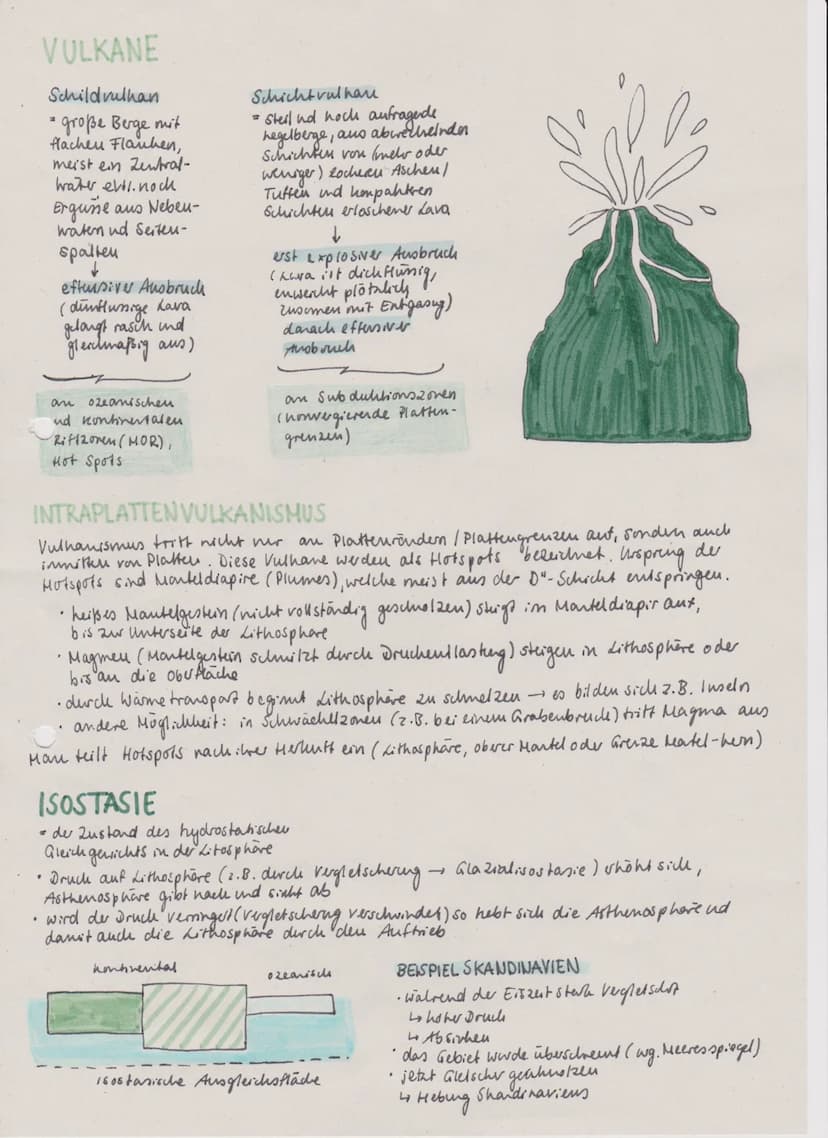 VULKANE
Schildvulkan
= große Berge mit
flachen Flanken,
meist ein Zentral-
krater evtl. noch
Ergüsse aus Neben-
kratern und Seiten-
spalten
↓
effusiver Ausbruch
(dünnflüssige Lava
gelangt rasch und
gleichmäßig aus)
an ozeanischen
und kontinentalen
Riftzonen (MOR),
Hot Spots
Schichtvulkan
= steil und hoch aufragende
Kegelberge, aus abwechselnden
Schichten von (mehr oder
weniger) lockeren Aschen/
Tuffen und kompakten
Schichten erloschener Lava
↓
erst explosiver Ausbruch
(Lava ist dickflüssig,
entweicht plötzlich
zusammen mit Entgasung)
danach effusiver
Ausbruch
an Subduktionszonen
(konvergierende Platten-
grenzen)
INTRAPLATTENVULKANISMUS
Vulkanismus tritt nicht nur an Plattenrändern / Plattengrenzen auf, sondern auch
inmitten von Platten. Diese Vulkane werden als Hotspots bezeichnet. Ursprung der
Hotspots sind Manteldiapire (Plumes), welche meist aus der D"-Schicht entspringen.
· heißes Mantelgestein (nicht vollständig geschmolzen) steigt im Manteldiapir auf,
bis zur Unterseite der Lithosphäre
· Magmen (Mantelgestein schmilzt durch Druckentlastung) steigen in Lithosphäre oder
bis an die Oberfläche
· durch Wärmetransport beginnt Lithosphäre zu schmelzen → es bilden sich z.B. Inseln
· andere Möglichkeit: in Schwächezonen (z.B. bei einem Grabenbruch) tritt Magma aus
Man teilt Hotspots nach ihrer Herkunft ein (Lithosphäre, oberer Mantel oder Grenze Mantel-Kern)
ISOSTASIE
= der Zustand des hydrostatischen
Gleichgewichts in der Litosphäre
· Druck auf Lithosphäre (z.B. durch Vergletscherung → Glazialisostasie) erhöht sich,
Asthenosphäre gibt nach und sinkt ab
· wird der Druck verringert (Vergletscherung verschwindet) so hebt sich die Asthenosphäre und
damit auch die Lithosphäre durch den Auftrieb
kontinental
ozeanisch
isostasische Ausgleichsfläche
BEISPIEL SKANDINAVIEN
· während der Eiszeit stark vergletschert
↳ hoher Druck
↳ Absinken
· das Gebiet wurde überschwemmt (wg. Meeresspiegel)
· jetzt Gletscher geschmolzen
↳ Hebung Skandinaviens